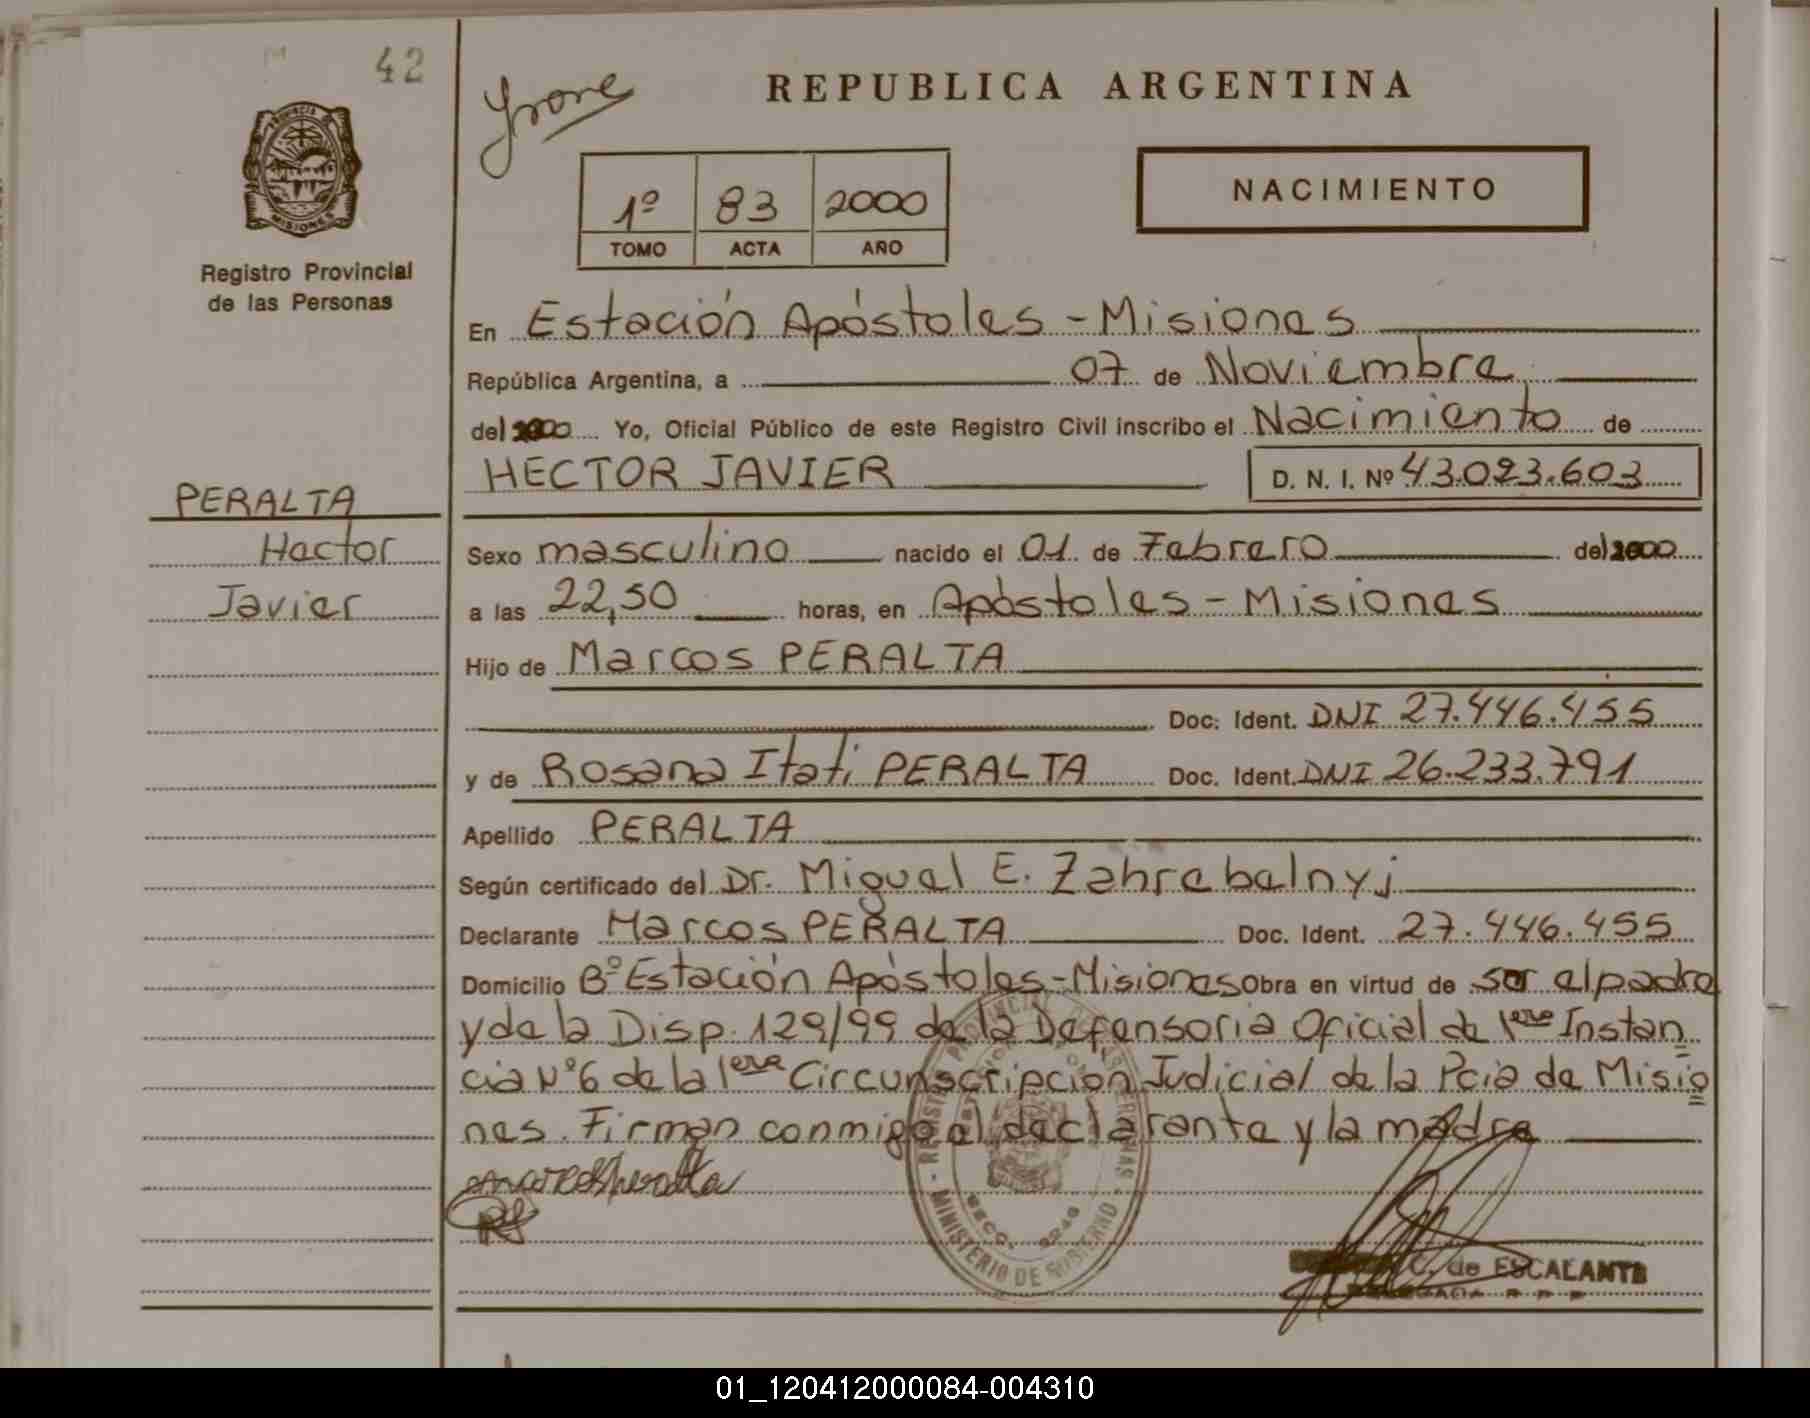 42
Yvone
REPUBLICA ARGENTINA
PROVINCIA DE MISIONES
1º 83 2000
TOMO ACTA AÑO
NACIMIENTO
Registro Provincial
de las Personas
En Estación Apóstoles - Misiones
República Argentina, a 07 de Noviembre
del 2000 Yo, Oficial Público de este Registro Civil inscribo el Nacimiento de
HECTOR JAVIER D. N. I. Nº 43.023.603
PERALTA
Hector
Javier
Sexo masculino nacido el 01 de Febrero del 2000
a las 22,50 horas, en Apóstoles - Misiones
Hijo de Marcos PERALTA
Doc. Ident. DNI 27.446.455
y de Rosana Itati PERALTA Doc. Ident. DNI 26.233.791
Apellido PERALTA
Según certificado del Dr. Miguel E. Zahrebalnyj
Declarante Marcos PERALTA Doc. Ident. 27.446.455
Domicilio Bº Estación Apóstoles - Misiones Obra en virtud de ser el padre
y de la Disp. 129/99 de la Defensoria Oficial de 1era Instan
cia Nº 6 de la 1era Circunscripción Judicial de la Pcia de Misio
nes. Firman conmigo el declarante y la madre
marcos peralta
RP
MINISTERIO DE GOBIERNO
C. de ESCALANTE
01_120412000084-004310